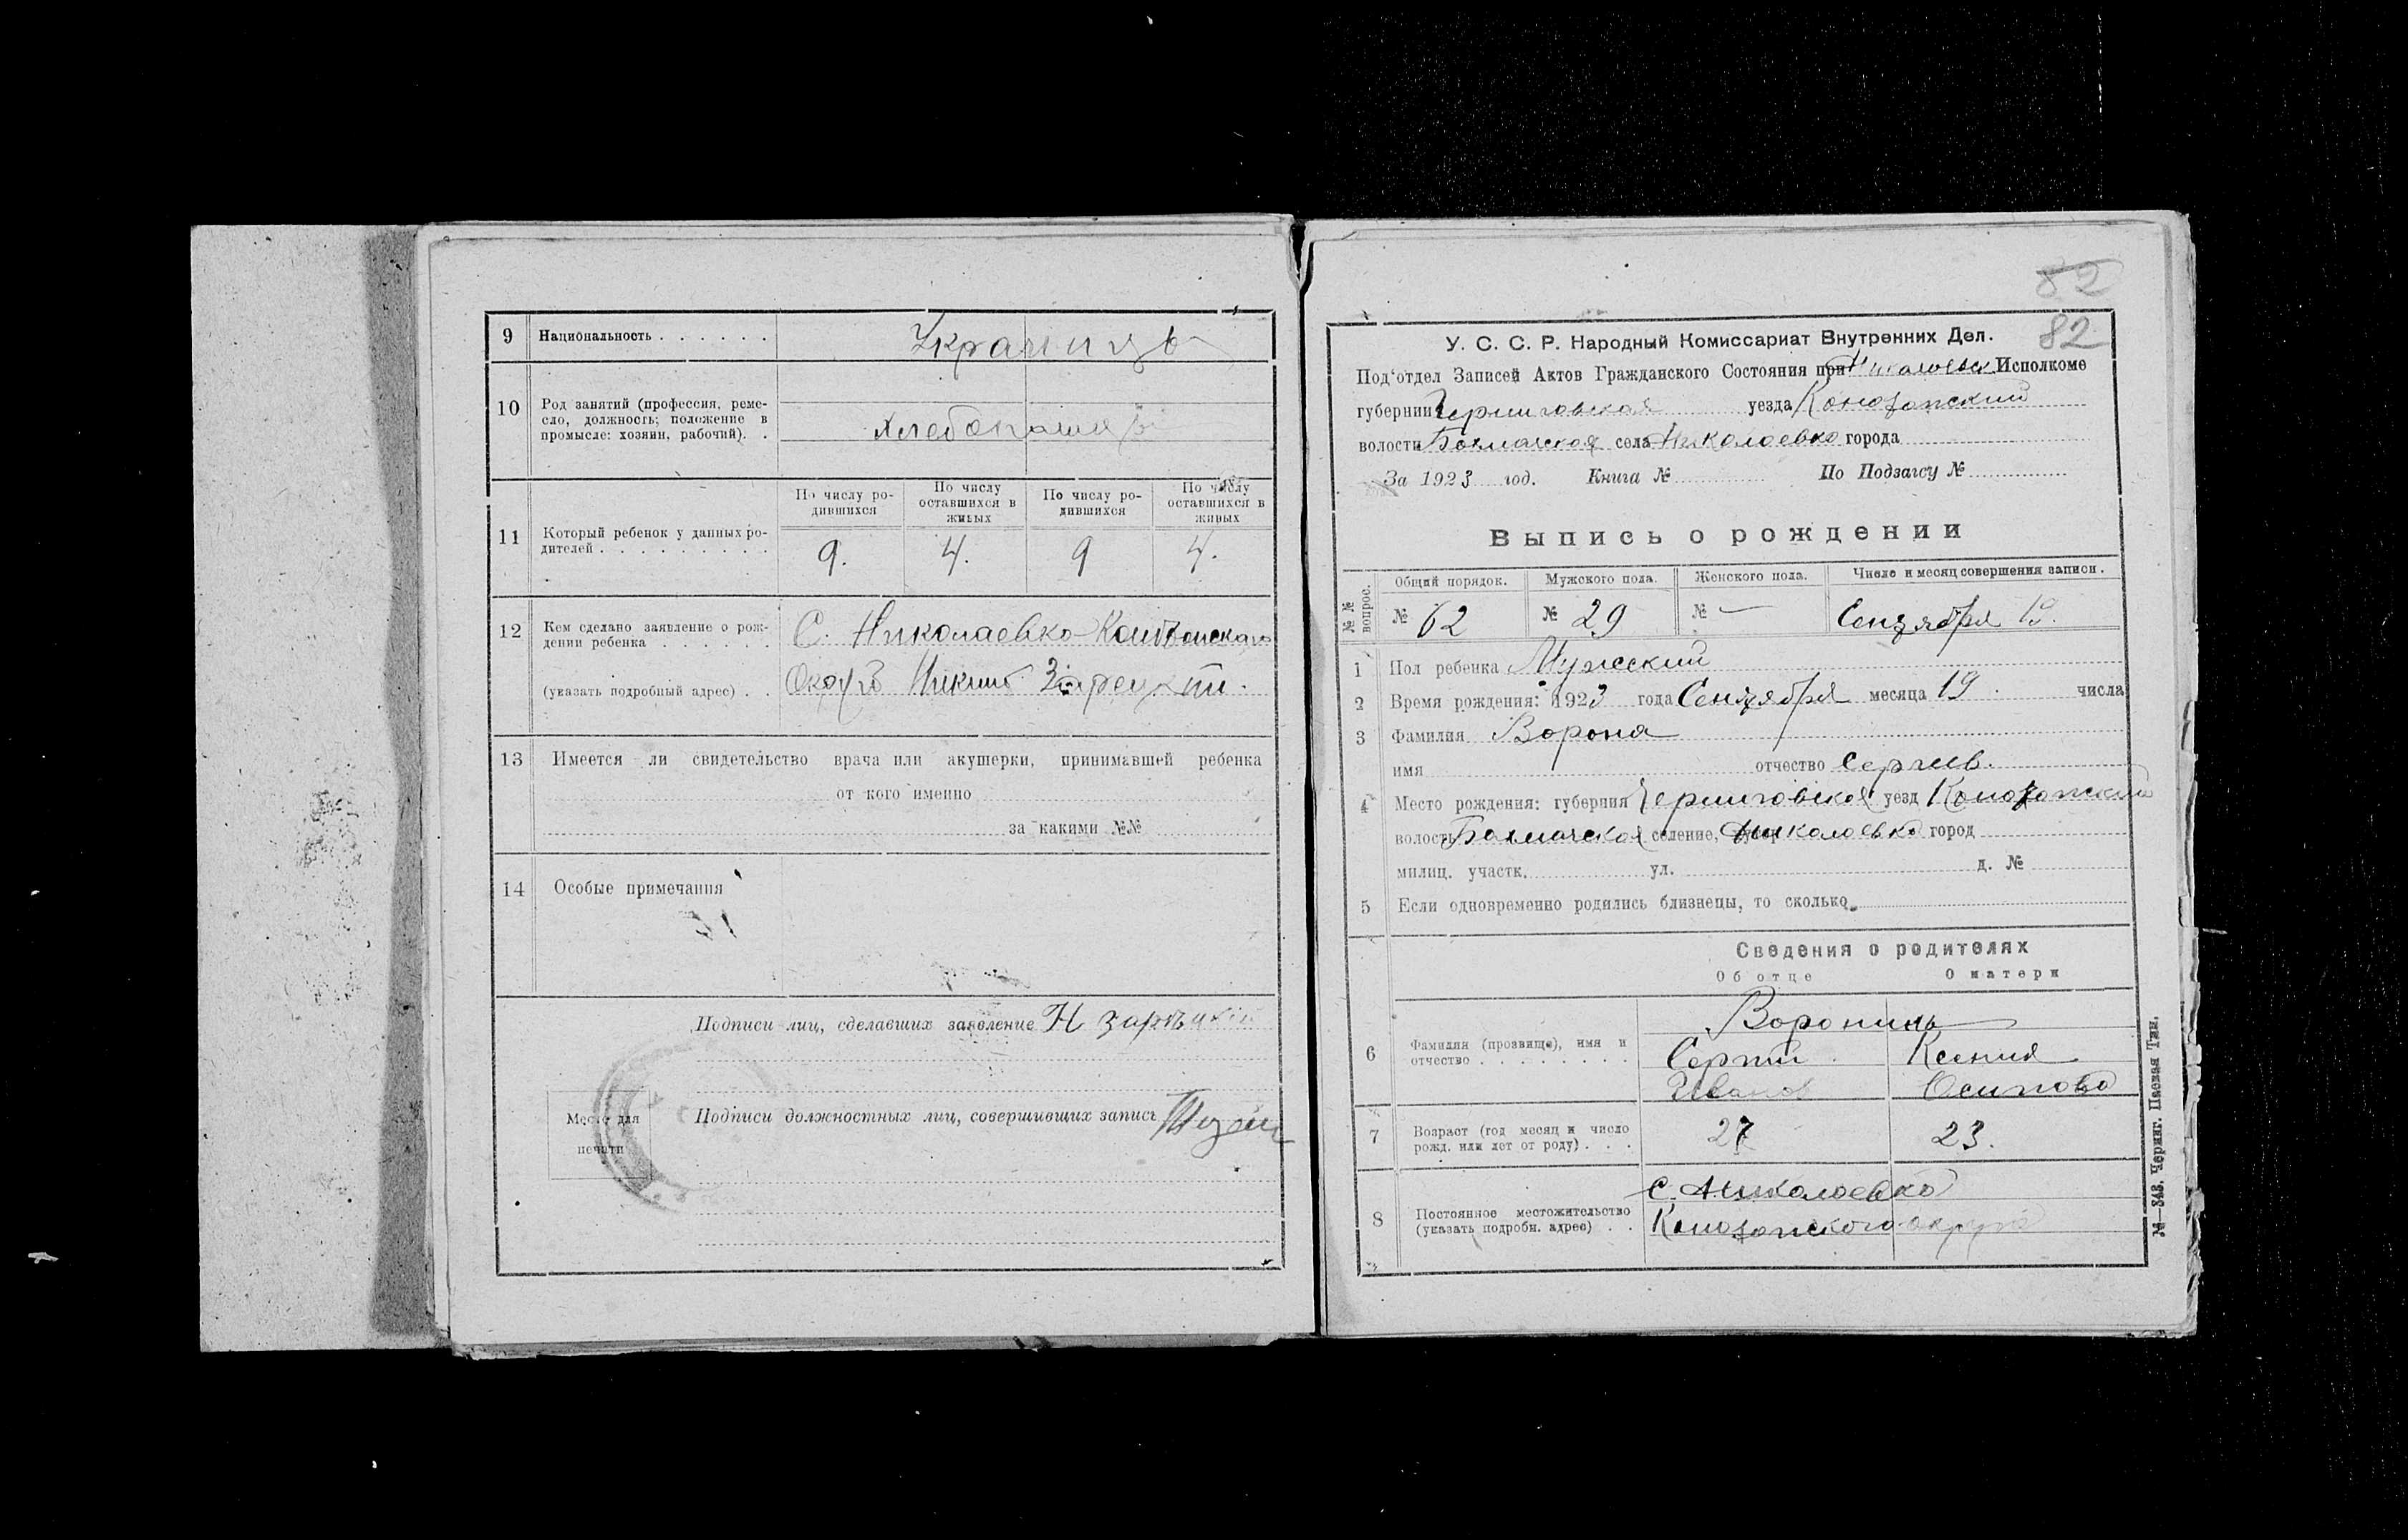 9 Национальность . . . . . . Украинцы
10 Род занятий (профессия, реме-
сло, должность; положение в
промысле: хозяин, рабочий). .
Хлебопашцы
По числу ро-
дившихся
По числу
оставшихся в
живых
По числу ро-
дившихся
По числу
оставшихся в
живых
11 Который ребенок у данных ро-
дителей . . . . . . . . .
9. 4. 9 4.
12 Кем сделано заявление о рож-
дении ребенка . . . . . .
(указать подробный адрес) . .
С. Николаевко
Зарецкий.
13 Имеется ли свидетельство врача или акушерки, принимавшей ребенка
от кого именно
за какими №№
14 Особые примечания
Подписи лиц, сделавших заявление Н Зарецкий
Место для
печати
Подписи должностных лиц, совершивших запись
82
82
У. С. С. Р. Народный Комиссариат Внутренних Дел.
Под'отдел Записей Актов Гражданского Состояния при Николаевск Исполкоме
губернии Черниговская уезда Конотопский
волости Бахмачская села Николаевко города
За 1923 год. Книга № По Подзагсу №
Выпись о рождении
№ №
вопрос.
Общий порядок. Мужского пола. Женского пола. Число и месяц совершения записи.
№ 62 № 29 № — Сентября 19.
1 Пол ребенка Мужский
2 Время рождения: 1923 года Сентября месяца 19. числа
3 Фамилия Ворона
имя отчество Сергиев.
4 Место рождения: губерния Черниговская уезд Конотопский
волость Бахмачская селение, Николаевко город
милиц. участк. ул. д. №
5 Если одновременно родились близнецы, то сколько
Сведения о родителях
Об отце О матери
6 Фамилия (прозвище), имя и
отчество . . . . . . . .
Воронины
Сергий Ксения
Иванов Осипово
7 Возраст (год месяц и число
рожд. или лет от роду) . . .
27 23.
8 Постоянное местожительство
(указать подробн. адрес) . .
С. Николаевко
Конотопского округа
№—343. Черниг. Паевая Тип.